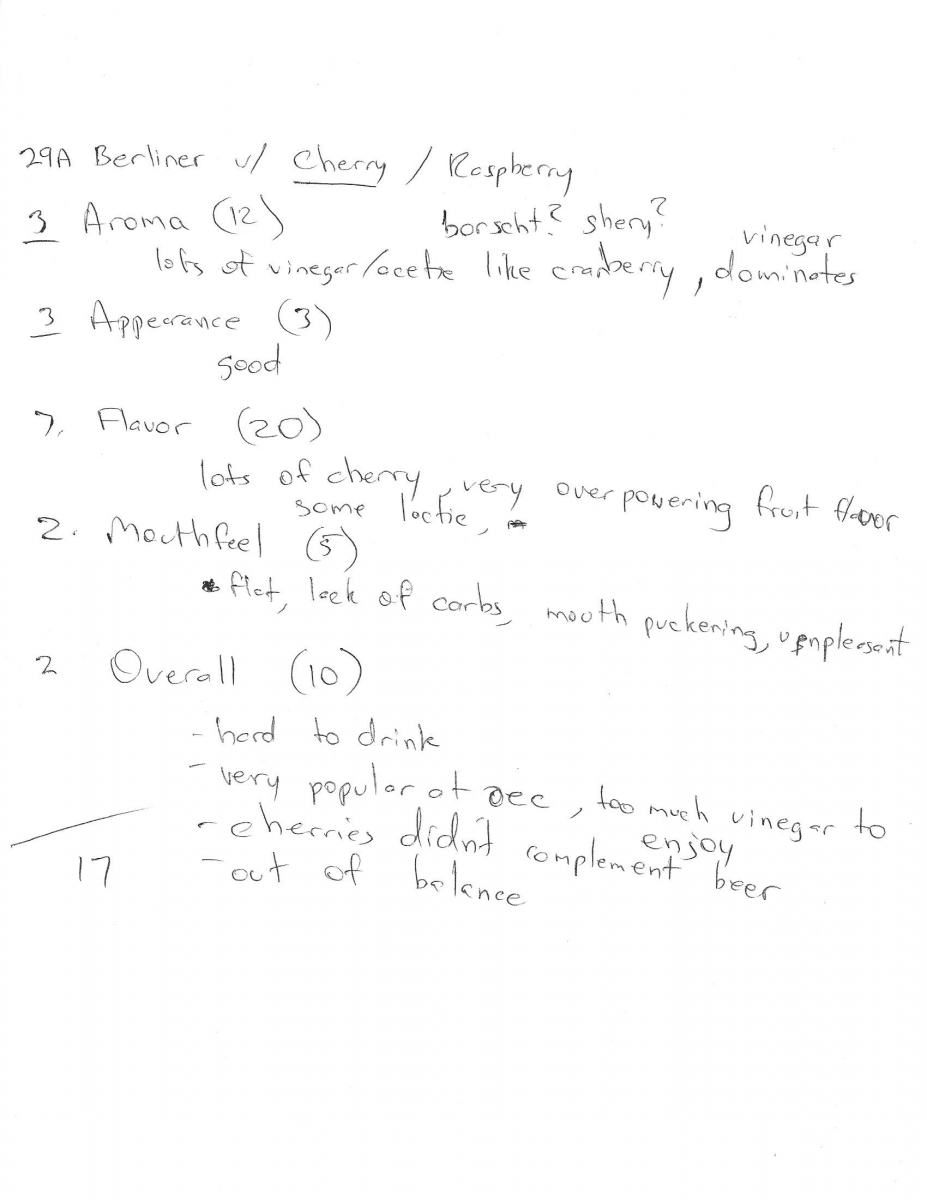 29A Berliner w/ Cherry / Raspberry
3 Aroma (12) borscht? shery? vinegar
lots of vinegar/acetic like cranberry, dominates
3 Appearance (3)
good
7. Flavor (20)
lots of cherry, very overpowering fruit flavor
some lactic,
2. Mouthfeel (5)
flat, lack of carbs, mouth puckering, unpleasant
2 Overall (10)
- hard to drink
- very popular at, too much vinegar to enjoy
- cherries didn't complement beer
- out of balance
17